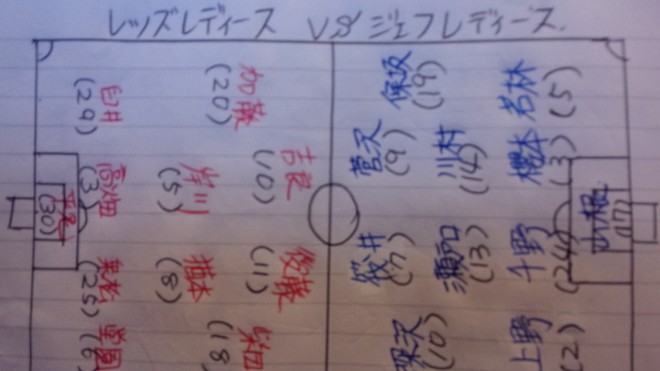 レッズレディース VS ジェフレディース
臼井
(29)
高畑
(3)
(30)
乗松
(25)
堂園
(6)
加藤
(20)
岸川
(5)
猶本
(8)
柴田
(18)
吉良
(10)
後藤
(11)
保坂
(19)
菅沢
(9)
筏井
(7)
深沢
(10)
川村
(14)
瀬戸口
(13)
若林
(5)
櫻本
(3)
千野
(24)
上野
(2)
山根
(17)